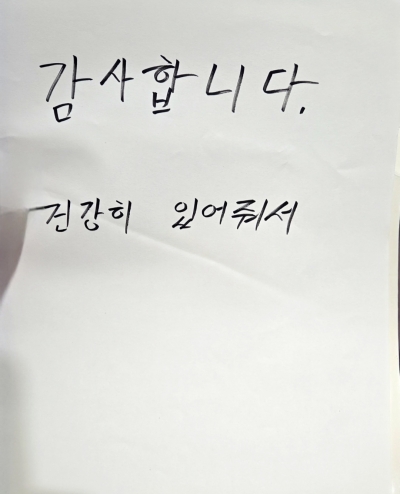 감사합니다.
건강히 있어줘서